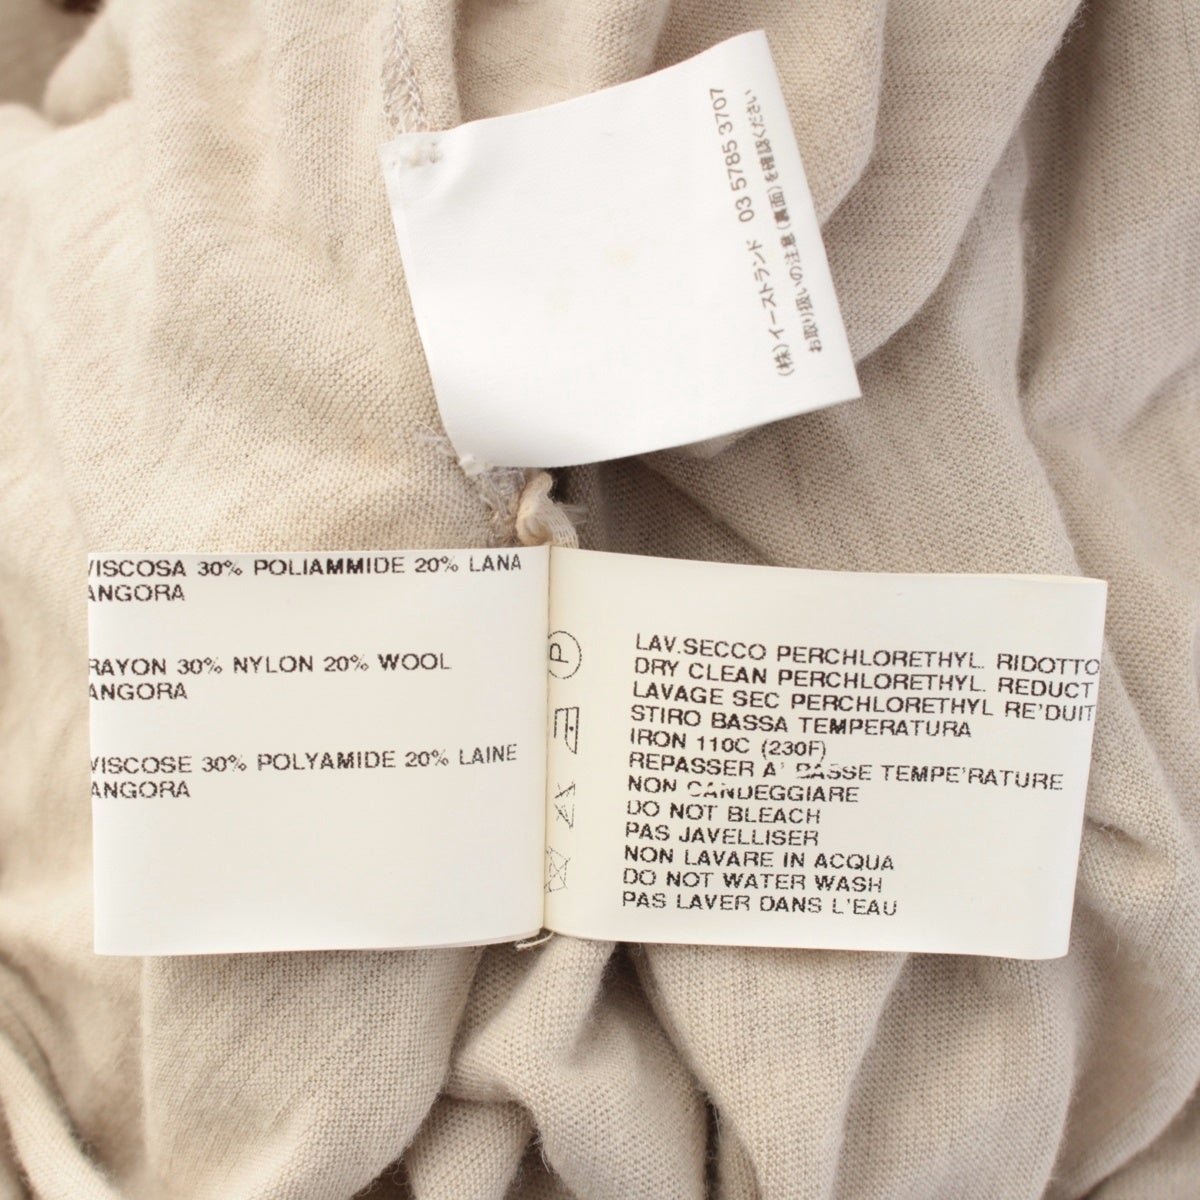 (株)イーストランド 03 5785 3707
お取り扱いの注意(裏面)を確認ください
VISCOSA 30% POLIAMMIDE 20% LANA
ANGORA
RAYON 30% NYLON 20% WOOL
ANGORA
VISCOSE 30% POLYAMIDE 20% LAINE
ANGORA
P
LAV.SECCO PERCHLORETHYL. RIDOTTO
DRY CLEAN PERCHLORETHYL. REDUCT
LAVAGE SEC PERCHLORETHYL RE'DUIT
STIRO BASSA TEMPERATURA
IRON 110C (230F)
REPASSER A' BASSE TEMPE'RATURE
NON CANDEGGIARE
DO NOT BLEACH
PAS JAVELLISER
NON LAVARE IN ACQUA
DO NOT WATER WASH
PAS LAVER DANS L'EAU